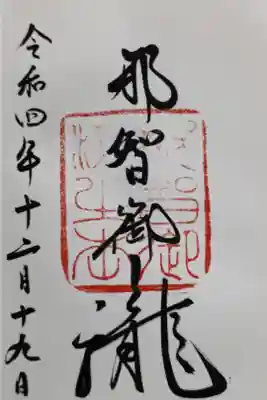 那智御瀧
令和四年十二月十九日